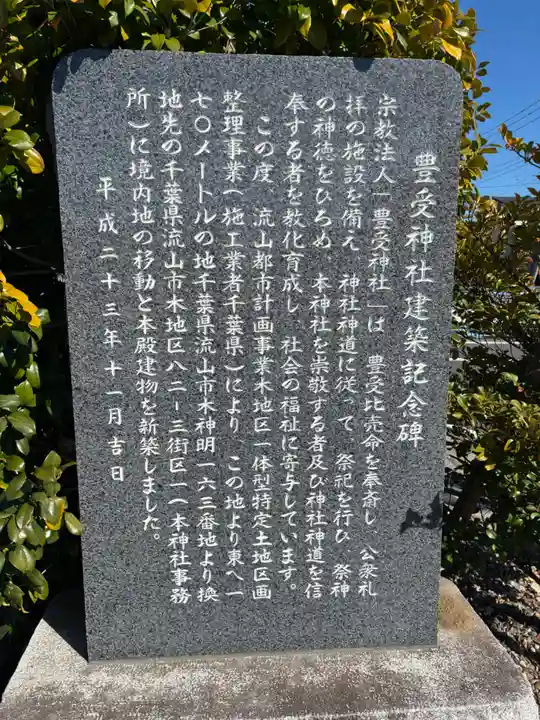 豊受神社建築記念碑
宗教法人「豊受神社」は、豊受比売命を奉斎し、公衆礼
拝の施設を備え、神社神道に従って、祭祀を行ひ、祭神
の神徳をひろめ、本神社を崇敬する者及び神社神道を信
奉する者を教化育成し、社会の福祉に寄与しています。
この度、流山都市計画事業木地区一体型特定土地区画
整理事業(施工業者千葉県)により、この地より東へ一
七〇メートルの地千葉県流山市木神明一六三番地より換
地先の千葉県流山市木地区八二-三街区一(本神社事務
所)に境内地の移動と本殿建物を新築しました。
平成二十三年十一月吉日